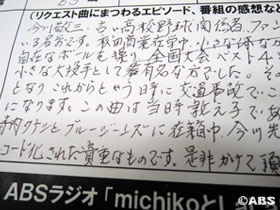 (リクエスト曲にまつわるエピソード、番組の感想など
今川敬三・古い高校野球関係者、ファン
いる名前です。秋田商業在学中、小さな体な
自在なボールを操り、全国大会ベスト4
小さな大投手として有名な方でした。そ
となり、これからという時に交通事故で、こ
になります。この曲は当時教え子で
寺内タケシとブルージーンズに在籍中、今川
コード化された貴重なものです。是非かけて頂
ABSラジオ「michikoとL
©ABS